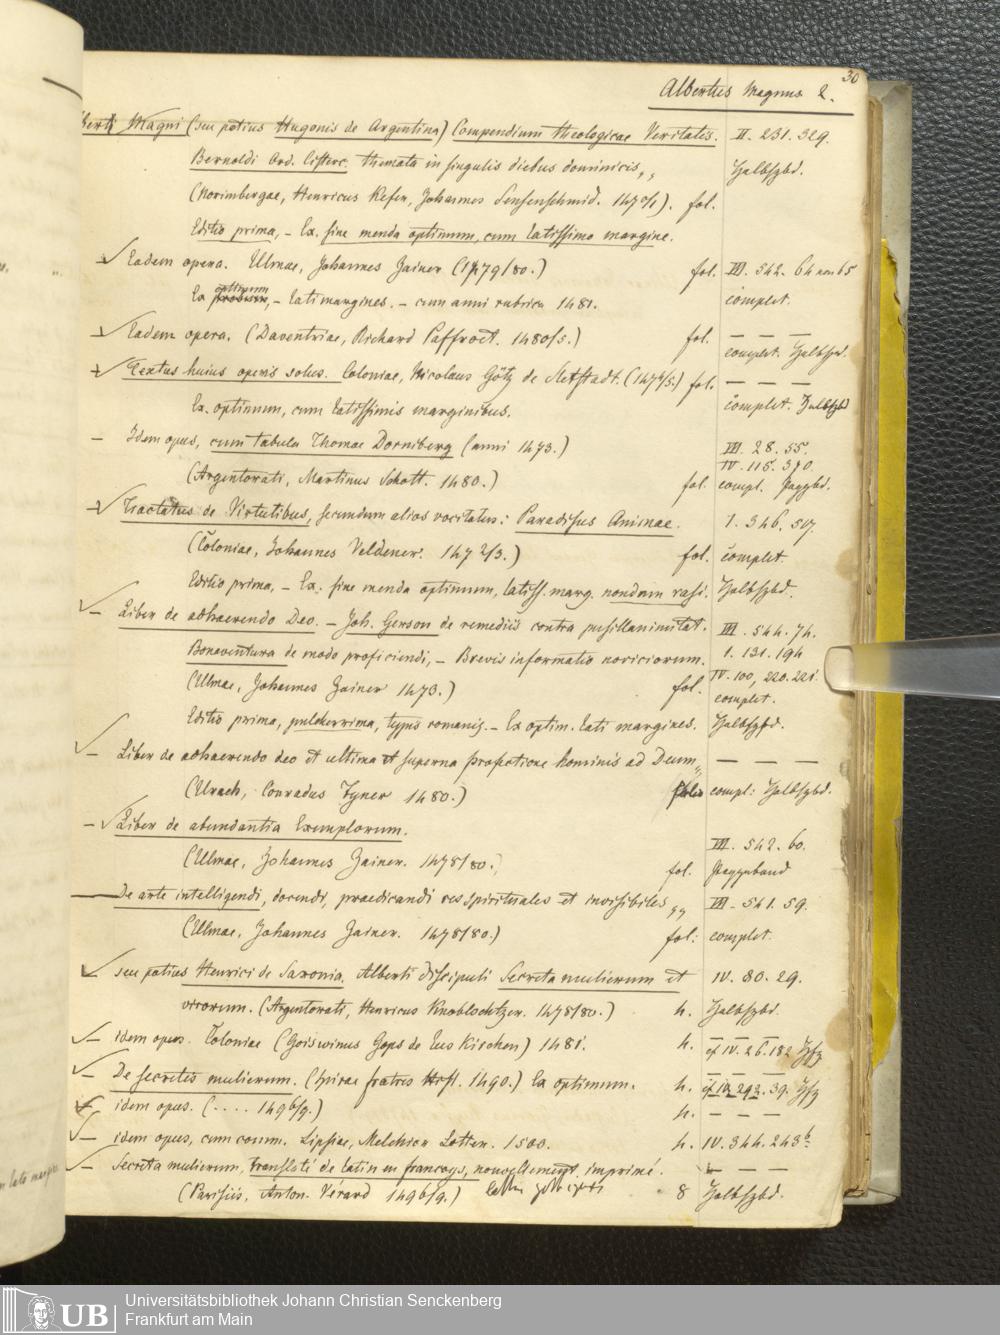 30
Albertus Magnus 2.
berti Magni (seu potius Hugonis de Argentina) Compendium theologicae Veritatis. II. 231. 329.
Bernoldi Ord. Cisterc. themata in singulis diebus dominicis,, Halbfzbd.
(Norimbergae, Henricus Kefer, Johannes Sensenschmid. 1470/1). fol.
Editio prima, - Ex. sine menda optimum, cum latissimo margine.
Eadem opera. Ulmae, Johannes Zainer (1479/80.) fol. III. 542. 64 non 65
Ex optimum, - lati margines. - cum anni rubrica 1481. complet.
Eadem opera. (Daventriae, Richard Paffroet. 1480/5.) fol. — — —
complet. Halbfzbd.
Textus huius operis solus. Coloniae, Nicolaus Götz de Sletzstadt. (1474/5.) fol. — — —
Ex. optimum, cum latissimis marginibus. complet. Halbfzbd
— Idem opus, cum tabula Thomae Dorniberg (anni 1473.) III. 28. 55.
IV. 115. 370.
(Argentorati, Martinus Schott. 1480.) fol. compl. Pappbd.
Tractatus de Virtutibus, secundum alios vocitatus: Paradisus Animae. 1. 346. 507.
(Coloniae, Johannes Veldener. 1472/3.) fol. complet.
Editio prima, - Ex: sine menda optimum, latiss. marg. nondum rasi. Halbfzbd.
Liber de adhaerendo Deo. - Joh. Gerson de remediis contra pusillanimitat. III. 544. 74.
Bonaventura de modo proficiendi, - Brevis informatio noviciorum. 1. 131. 194
(Ulmae, Johannes Zainer 1473.) fol. IV. 100, 220. 221.
complet.
Editio prima, pulcherrima, typis romanis. - Ex optim. lati margines. Halbfzbd.
Liber de adhaerendo deo et ultima et superna profectione hominis ad Deum,, — — —
(Urach, Conradus Fyner 1480.) compl: Halbfzbd.
— Liber de abundantia Exemplorum. III. 542. 60.
(Ulmae, Johannes Zainer. 1478/80.) fol. Pappband
De arte intelligendi, docendi, praedicandi res spirituales et invisibiles,, III. 541. 59.
(Ulmae, Johannes Zainer. 1478/80.) fol: complet.
seu potius Henrici de Saxonia, Alberti discipuli Secreta mulierum et IV. 80. 29.
virorum. (Argentorati, Henricus Knoblochtzer. 1478/80.) 4. Halbfzbd.
— idem opus. Coloniae (Goiswinus Gops de Euskirchen) 1481. 4. cf IV. 26. 182
— De secretis mulierum. (Spirae fratres Hist. 1490.) Ex optimum. 4. — — —
cf IV. 292. 39.
idem opus. (.... 1496/9.) 4. — — —
— idem opus, cum comm. Lipsiae, Melchior Lotter. 1500. 4. IV. 344. 243b
— Secreta mulierum, translaté de latin en francoys, nouvellement imprimé. — — —
(Parisiis, Anton. Vérard 1496/9.) 8 Halbfzbd.
UB
Universitätsbibliothek Johann Christian Senckenberg
Frankfurt am Main